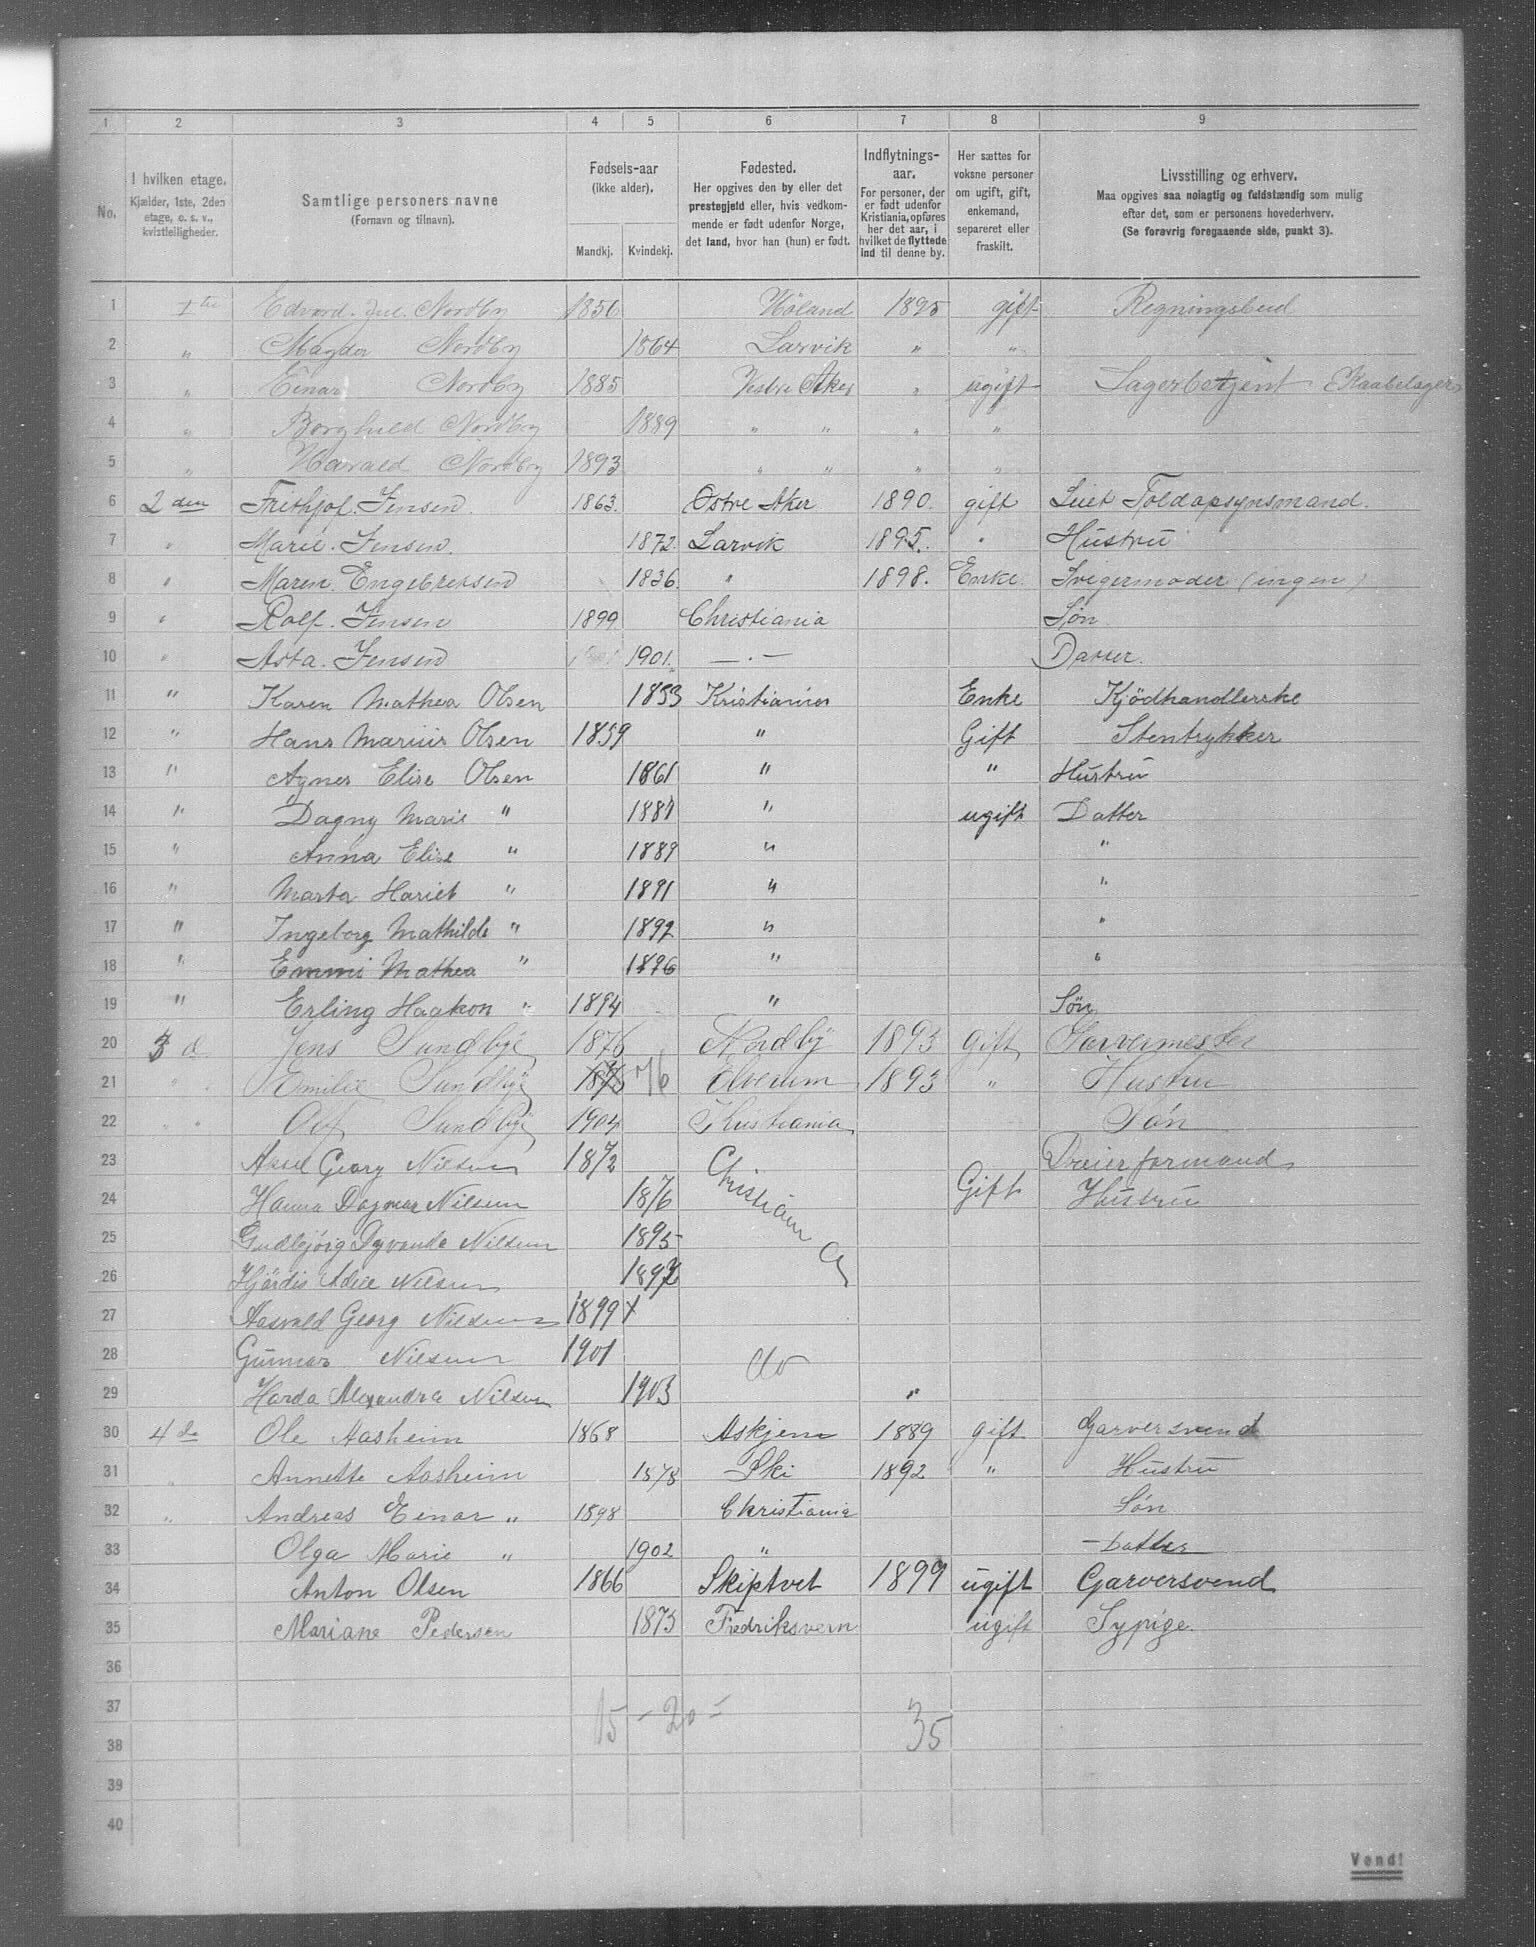 1 2 3 4 5 6 7 8 9
No.
I hvilken etage. Kjælder, 1ste, 2den etage, o. s. v., kvistleiligheder.
Samtlige personers navne (Fornavn og tilnavn).
Fødsels-aar (ikke alder). Mandkj. Kvindekj.
Fødested. Her opgives den by eller det prestegjeld eller, hvis vedkommende er født udenfor Norge, det land, hvor han (hun) er født.
Indflytnings-aar. For personer, der er født udenfor Kristiania, opføres her det aar, i hvilket de flyttede ind til denne by.
Her sættes for voksne personer om ugift, gift, enkemand, separeret eller fraskilt.
Livsstilling og erhverv. Maa opgives saa nøiagtig og fuldstændig som mulig efter det, som er personens hovederhverv. (Se forøvrig foregaaende side, punkt 3).
1 1ste Edvard Jul. Nordby 1856 Höland 1895 gift Regningsbud
2 " Nordby 1864 Larvik " "
3 " Einar Nordby 1885 Vestre Aker " ugift Lagerbetjent
4 " Borghild Nordby 1889 " " " "
5 " Harald Nordby 1893 " " " "
6 2den Frithjof Jensen 1863. Østre Aker 1890. gift Toldopsynsmand.
7 " Marie Jensen. 1872. Larvik 1895. " Hustru
8 " Maren Engebretsen 1836. " 1898. Enke. Svigermoder (ingen)
9 " Rolf Jensen 1899 Christiania Søn
10 " Asta. Jensen 1901. —"— Datter.
11 " Karen Mathea Olsen 1833 Kristiania Enke Kjödhandlerske
12 " Hans Marius Olsen 1859 " Gift Stentrykker
13 " Agnes Elise Olsen 1861 " " Hustru
14 " Dagny Marie " 1887 " ugift Datter
15 " Anna Elise " 1889 " "
16 " Marta Hariet " 1891 " "
17 " Ingeborg Mathilde " 1892 " "
18 " Emmi Mathea " 1896 " "
19 " Erling Haakon " 1894 " Søn
20 3 d. Jens Sundbye 1876 Nordby 1893 gift Garvermester
21 " " Emilie Sundbye 76 Elverum 1893 " Hustru
22 " " Sundbye 1904 Kristiania Søn
23 Georg Nilsen 1872 Christiania Dreierformand
24 Hanna Dagmar Nilsen 1876 Gift Hustru
25 Nilsen 1895
26 Hjördis Nilsen 1897
27 Georg Nilsen 1899
28 Gunnar Nilsen 1901 do
29 Harda Alexandra Nilsen 1903 "
30 4de Ole Aasheim 1868 Askjem 1889 gift Garversvend
31 " Annette Aasheim 1878 Ski 1892 " Hustru
32 " Andreas Einar " 1898 Christiania Søn
33 Olga Marie " 1902 " Datter
34 Anton Olsen 1866 Skiptvet 1899 ugift Garversvend
35 Mariane Pedersen 1873 Fredriksvern ugift Sypige.
36
37 15 - 20 = 35
38
39
40
Vend!